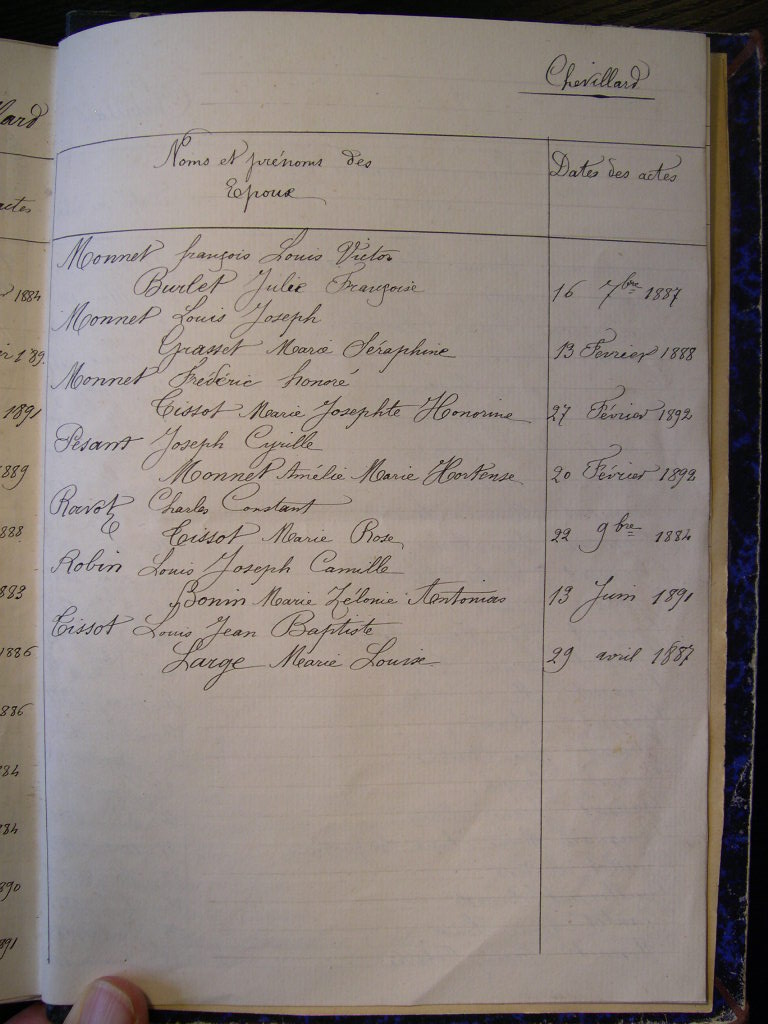 Chevillard
Noms et prénoms des
Epoux
Dates des actes
Monnet françois Louis Victor
Burlet Julie Françoise 16 7bre 1887
Monnet Louis Joseph
Grasset Marie Séraphine 13 Fevrier 1888
Monnet Frédéric honoré
Tissot Marie Josephte Honorine 27 Février 1892
Pesant Joseph Cyrille
Monnet Amélie Marie Hortense 20 Février 1892
Ravot Charles Constant
Tissot Marie Rose 22 9bre 1884
Robin Louis Joseph Camille
Bonin Marie Zélonie 13 Juin 1891
Tissot Louis Jean Baptiste
Large Marie Louise 29 avril 1887